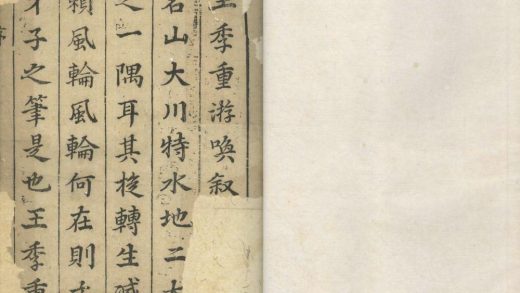 王季重游喚叙
名山大川特水地二大
之一隅耳其轉生
賴風輪風輪何在則才
才子之筆是也王季重
序